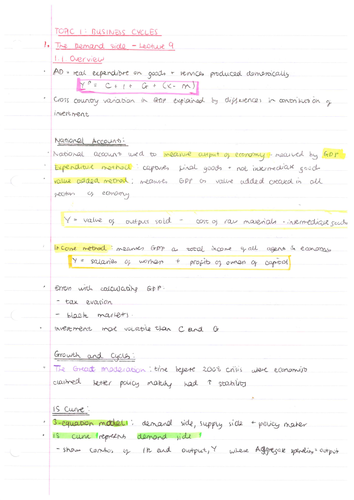 TOPIC 1: BUSINESS CYCLES
1. The Demand side - Lecture 9
1.1 Overview
AD = real expenditure on goods + services produced domestically
Y = C + I + G + (X - M)
Cross country variation in GDP explained by differences in contribution of
investment
National Accounts:
National account used to measure output of economy - measured by GDP
Expenditure method: captures final goods + not intermediate goods
value added method: measures GDP as value added created in all
sectors of economy
Y = value of output sold - cost of raw materials + intermediate goods
Income method: measures GDP as total income of all agents in economy
Y = salaries of workers + profits of owners of capital
Errors with calculating GDP:
- tax evasion
- black markets
investment more volatile than C and G
Growth and Cycles:
The Great Moderation: time before 2008 crisis where economists
claimed better policy making had ↑ stability
IS Curve:
3-equation model: demand side, supply side + policy maker
IS curve represent demand side
- show combos of IR and output, Y where Aggregate spending = output